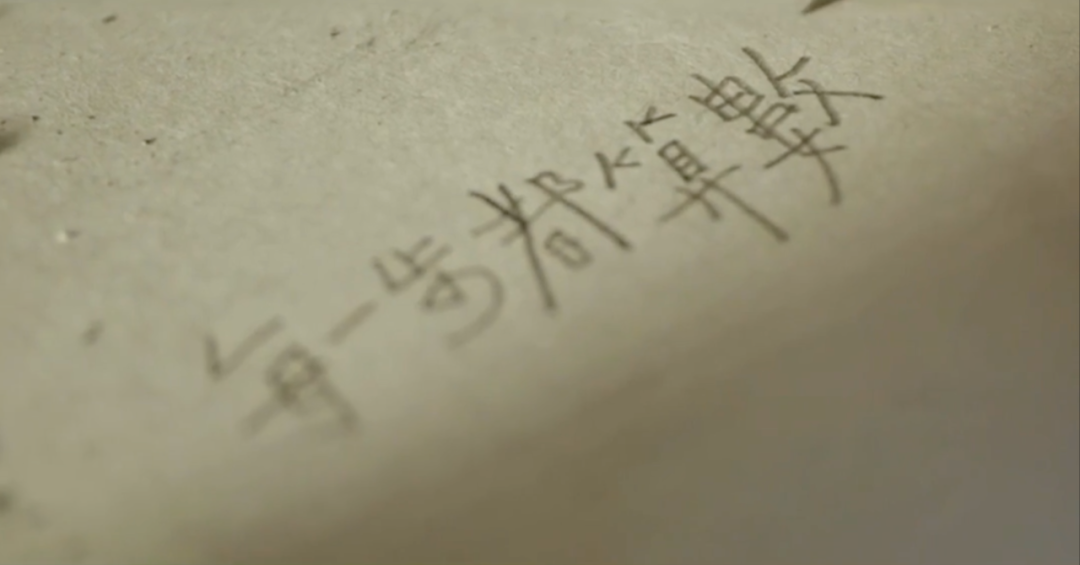 每一步都算數